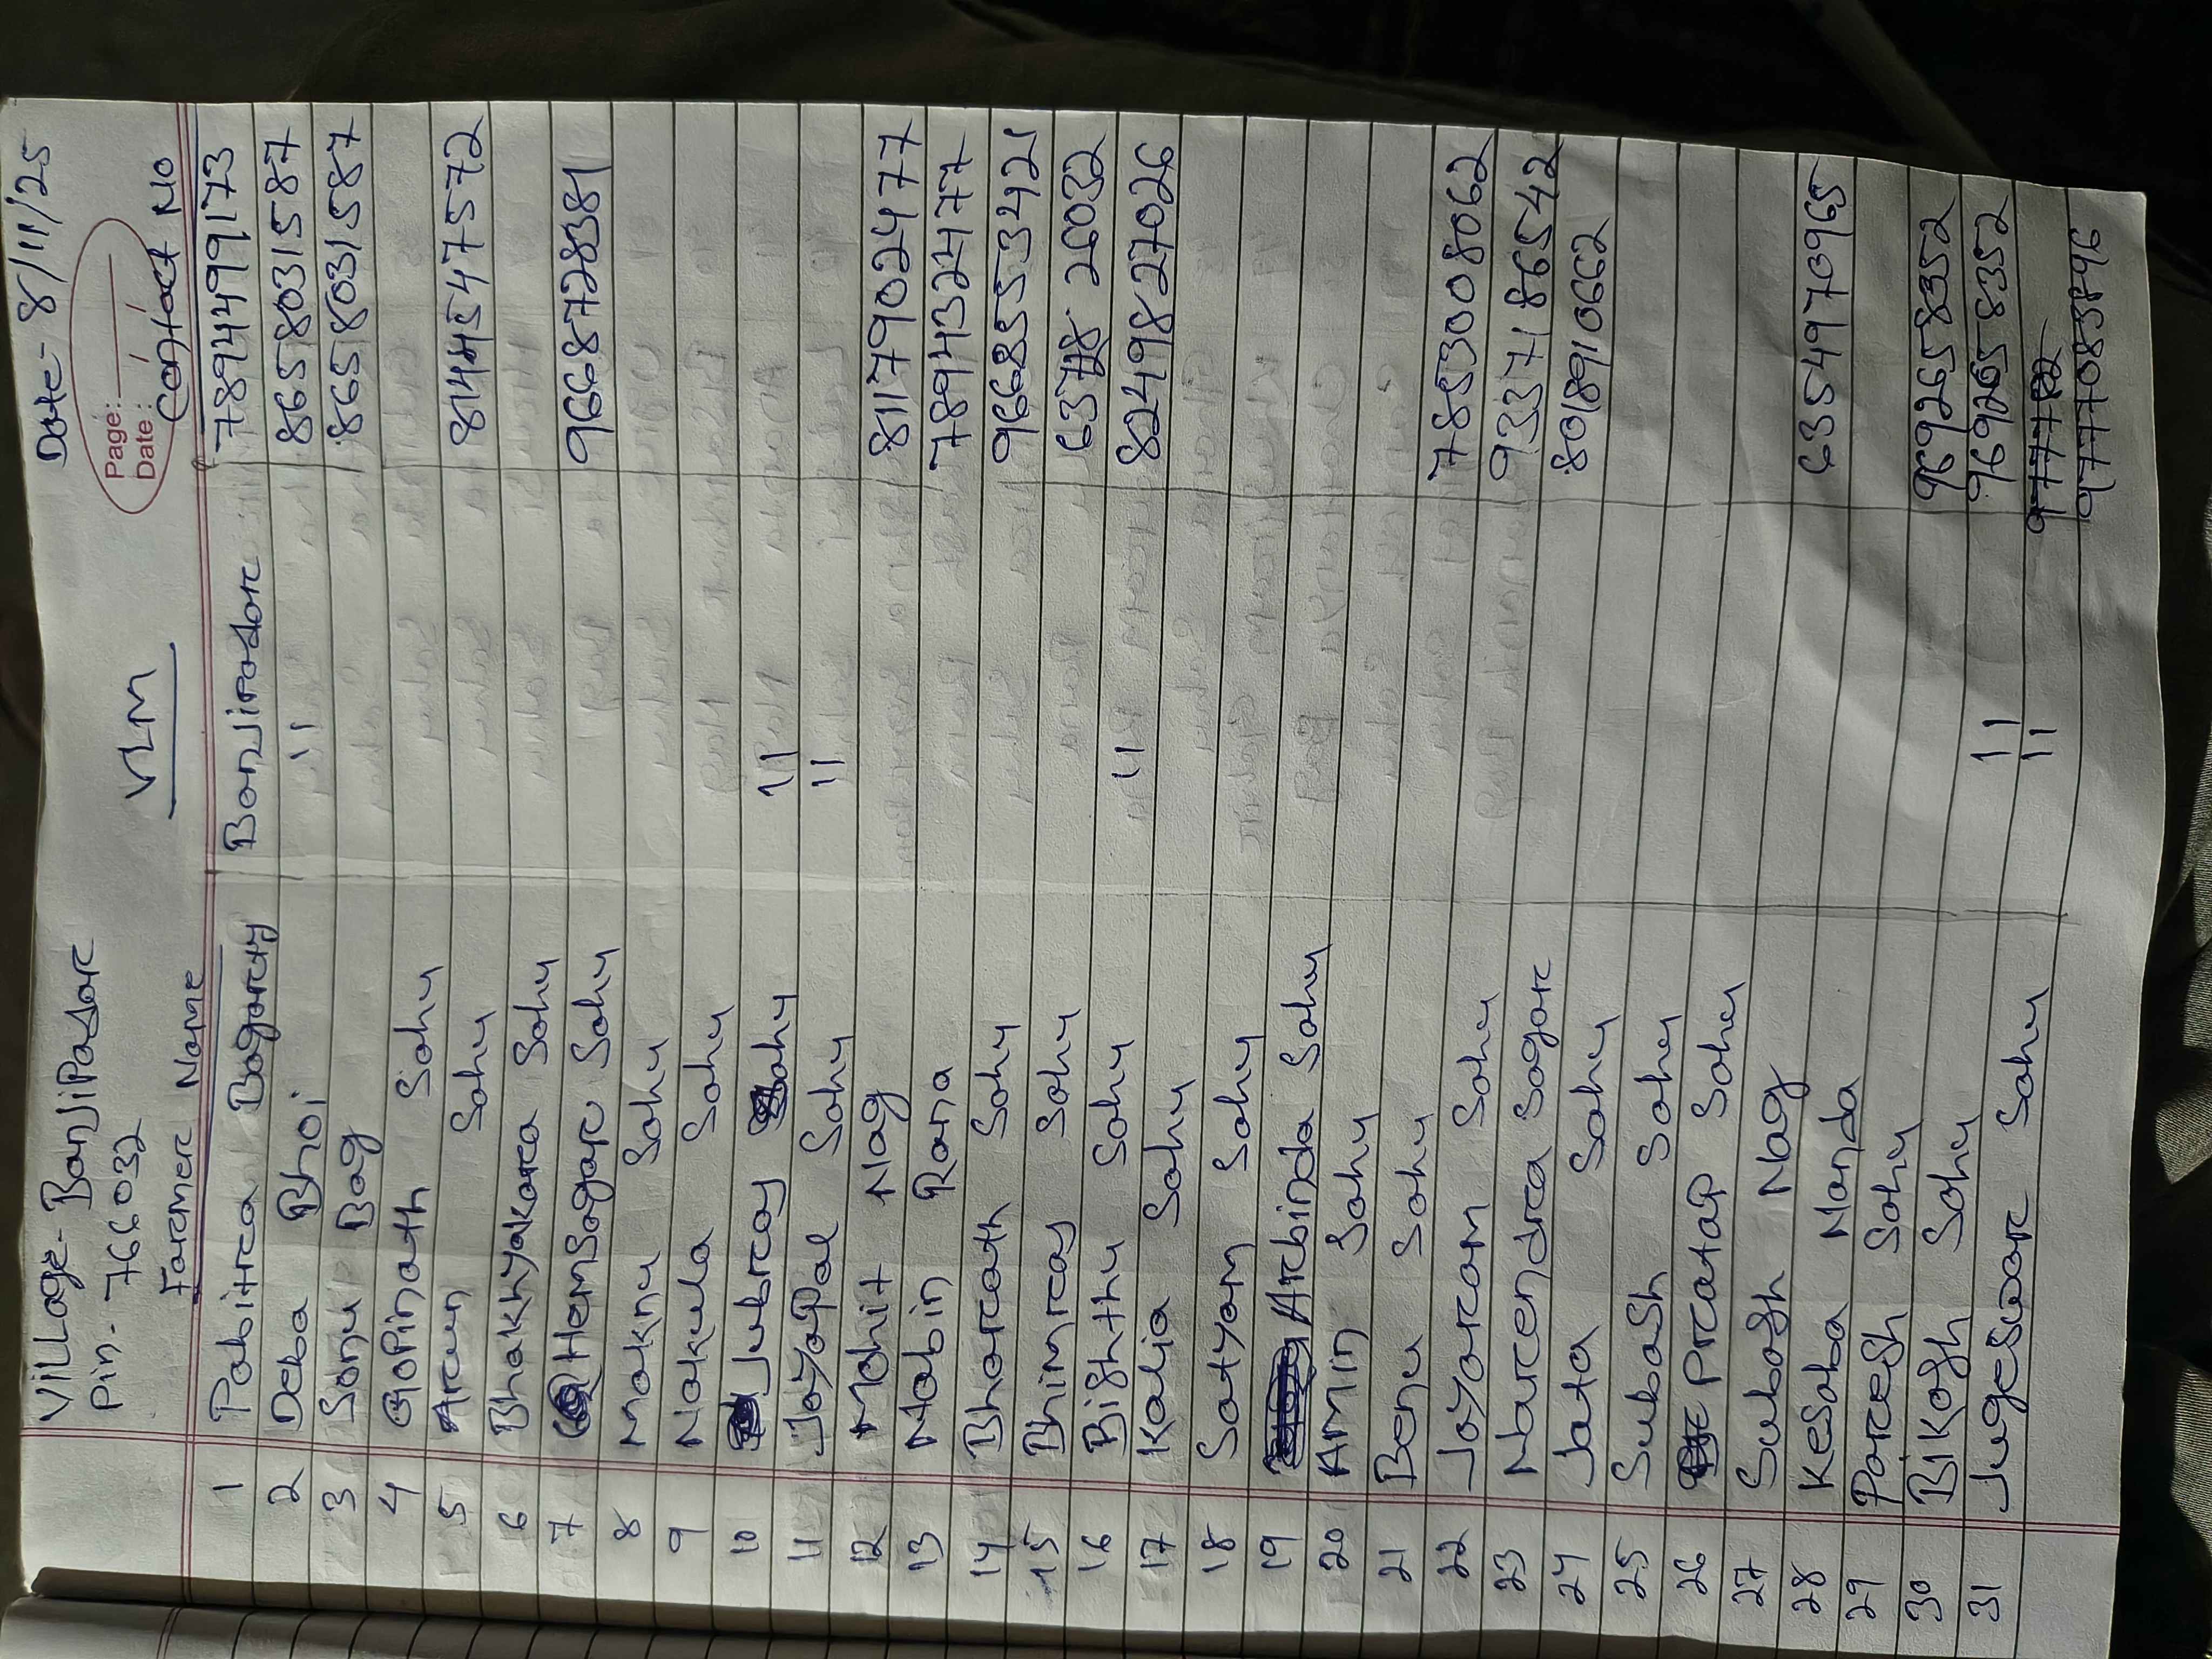 Date- 8/11/25
Page:
Date: / /
Village- BanJiPadar
Pin- 766032
VLM
Farmer Name Contact No
1 Pabitra Bagarty Banjipadar 7894499173
2 Deba Bhoi 11 8658031587
3 Sonu Bag 8658031587
4 GoPinath Sahu
5 Arun Sahu 8144547572
6 Bhakhyakara Sahu
7 HemSagar Sahu 9668728381
8 Maknu Sahu
9 Nakula Sahu
10 Jubray Sahu 11
11 JayaPal Sahu 11
12 Mohit Nag 8117902477
13 Nabin Rana 789432477
14 Bharath Sahu 9668553421
15 Bhimray Sahu 637826032
16 Bishthu Sahu 11 8249827026
17 Kalia Sahu
18 Satyam Sahu
19 Arbinda Sahu
20 Amin Sahu
21 Benu Sahu
22 Jayaram Sahu 7853008062
23 Narendra Sagar 9337186542
24 Jata Sahu 8018910662
25 Subash Sahu
26 Pratap Sahu
27 Subash Nag
28 Kesaba Nanda 6354970965
29 Paresh Sahu
30 Bikash Sahu 9692658352
31 Jugeswar Sahu 11 9692658352
11
9777083896